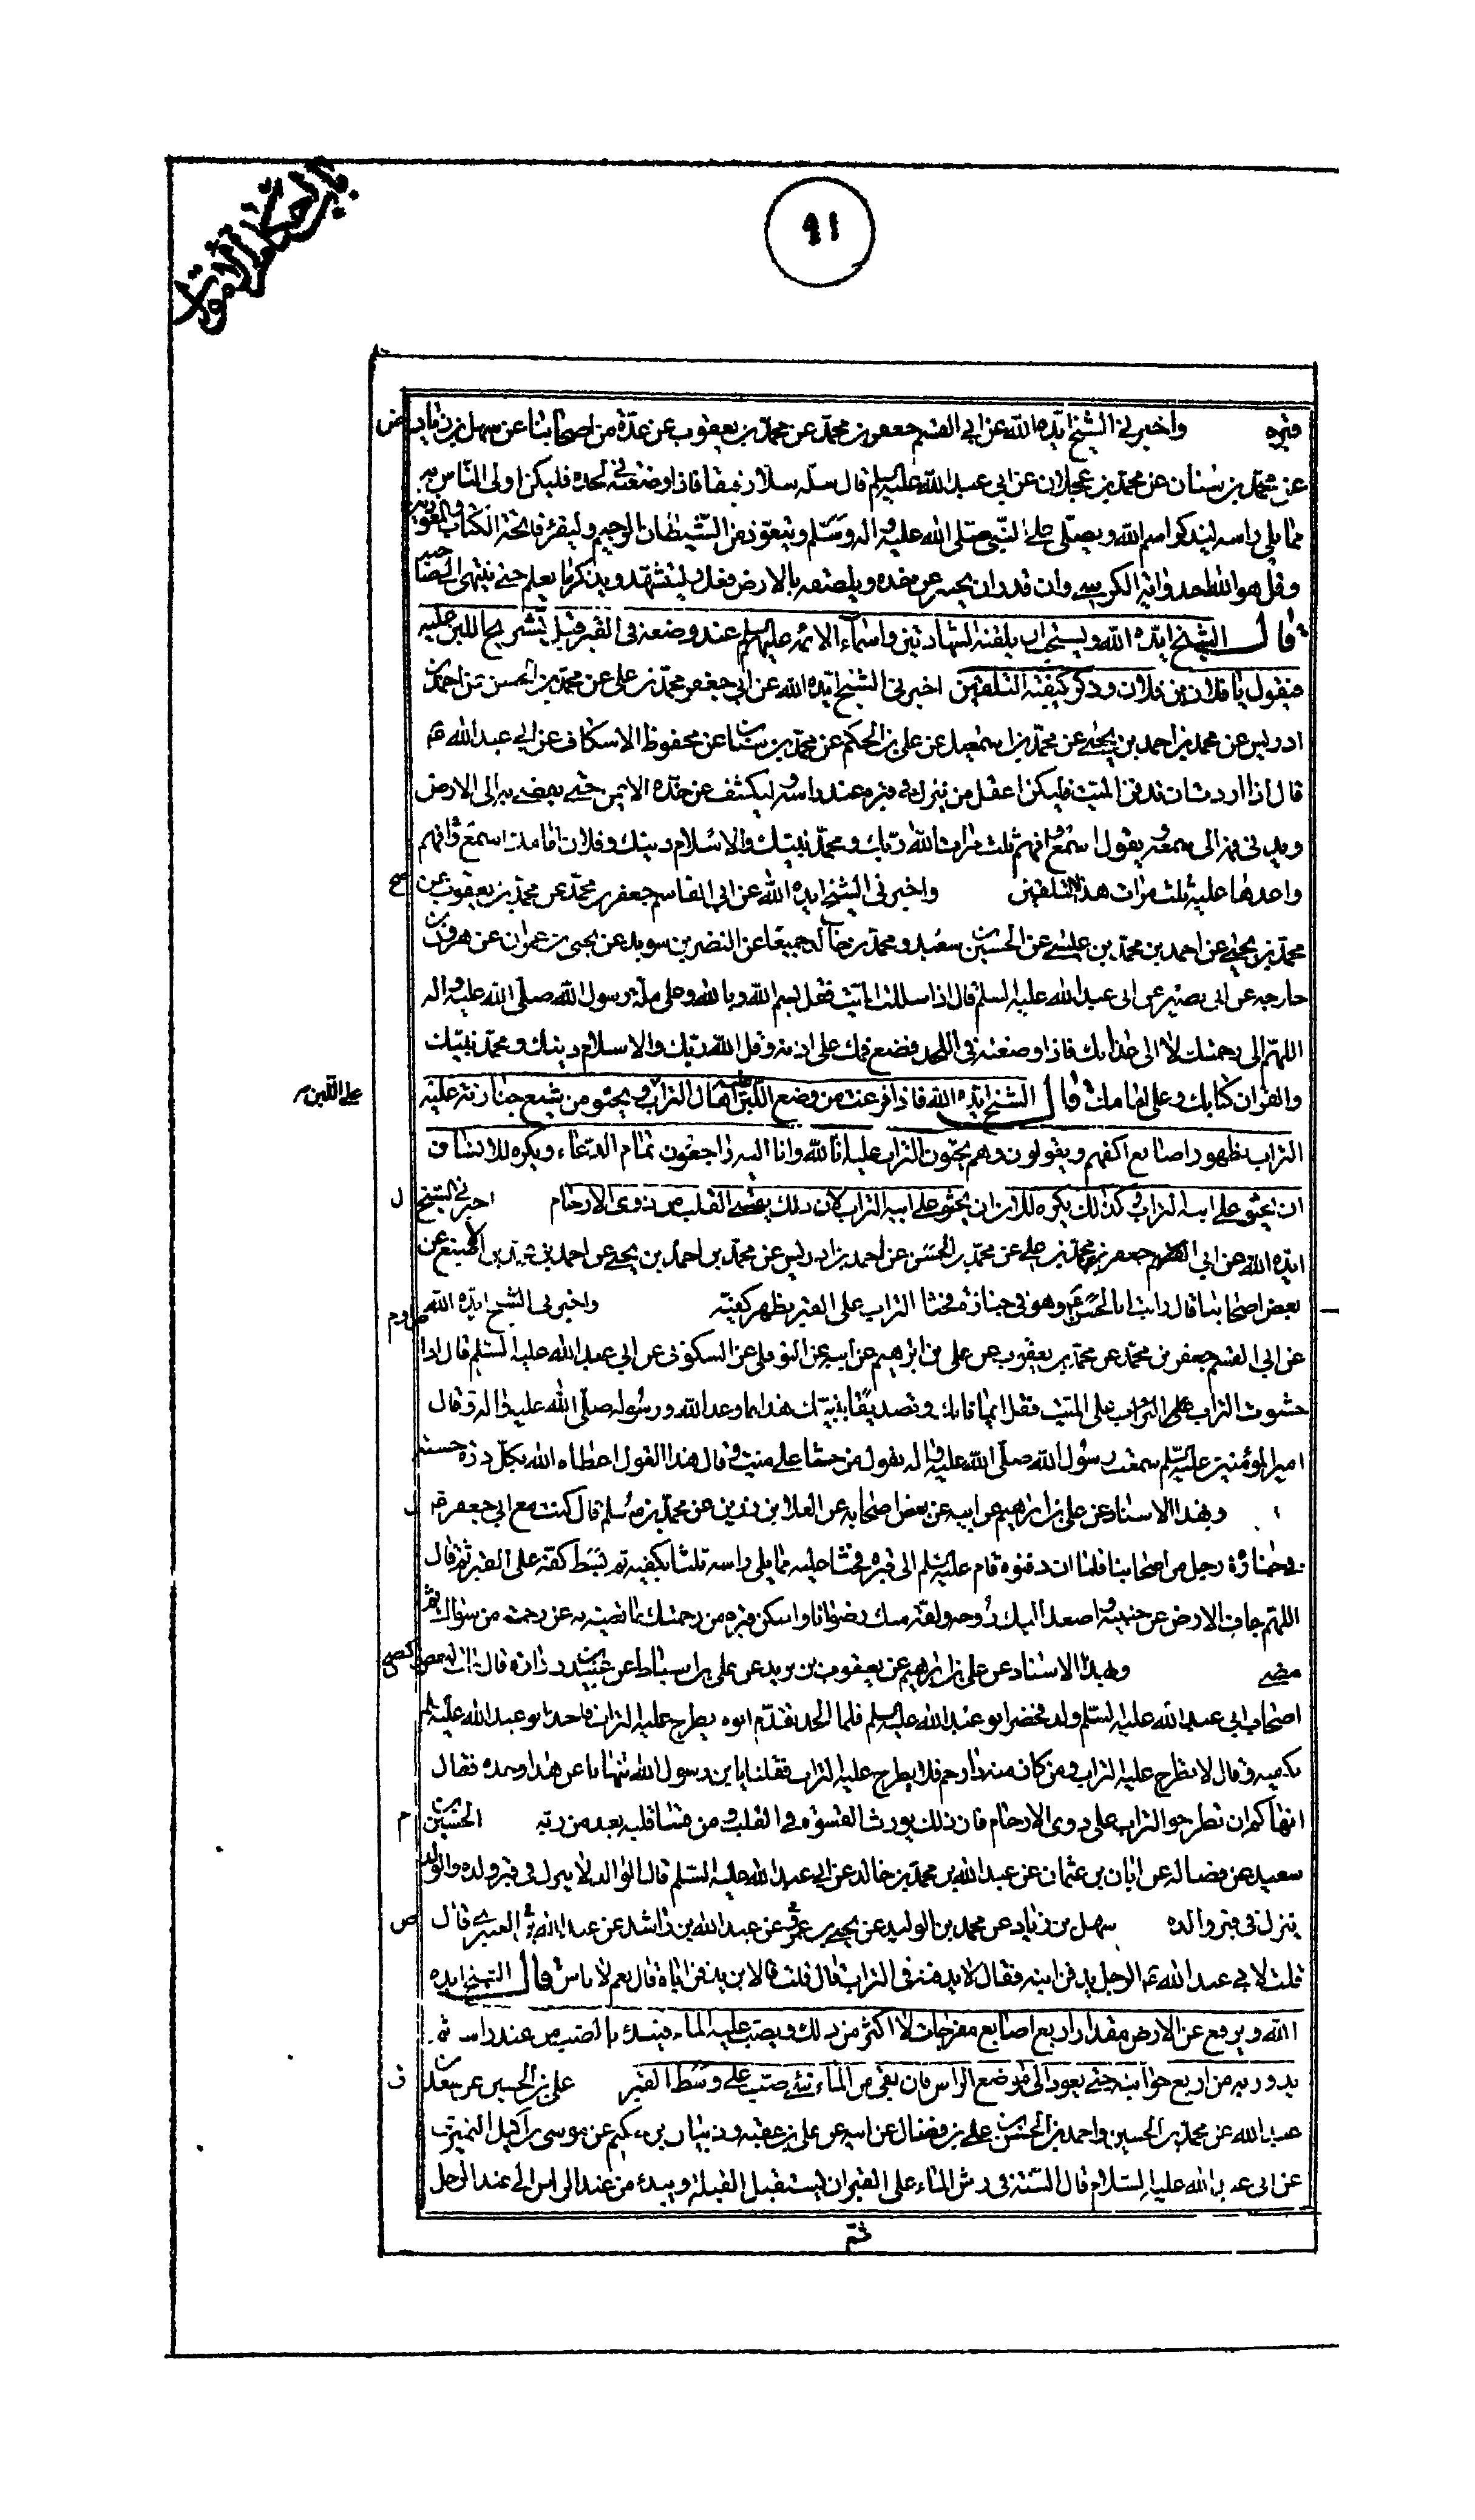 باب احكام الاموات
٩١
قبره واخبرني الشيخ ايّده الله عن ابي القسم جعفر بن محمّد عن محمّد بن يعقوب عن عدّة من اصحابنا عن سهل بن زياد ض
عن محمّد بن سنان عن محمّد بن عجلان عن ابي عبد الله عليه السلم قال سلّه سلّا رفيقا فاذا وضعته في لحده فليكن اولى الناس به
ممّا يلي راسه ليذكر اسم الله ويصلّي على النّبي صلّى الله عليه واله وسلّم ويتعوّذ من الشّيطان الرجيم وليقرء فاتحة الكتاب والمعوذتين
وقل هو الله احد واية الكرسي وان قدر ان يحسر عن خده ويلصقه بالارض فعل وليتشهّد ويذكر ما يعلم حتى ينتهي الى صاحبه
قال الشيخ ايّده الله ويستحب ان يلقنه الشهادتين واسماء الائمة عليهم السلم عند وضعه في القبر قبل تشريج اللبن عليه
فيقول يا فلان بن فلان وذكر كيفية التلقين اخبرني الشيخ ايّده الله عن ابي جعفر محمّد بن علي عن محمّد بن الحسن عن احمد بن
ادريس عن محمد بن احمد بن يحيى عن محمّد بن اسمعيل عن علي بن الحكم عن محمّد بن سنان عن محفوظ الاسكاف عن ابي عبد الله ع
قال اذا اردت ان تدفن الميت فليكن اعقل من ينزل في قبره عند راسه وليكشف عن خدّه الايمن حتى يفضي به الى الارض
ويدني فمه الى سمعه ويقول اسمع وافهم ثلث مرات الله ربّك ومحمّد نبيّك والاسلام دينك وفلان امامك اسمع وافهم
واعدها عليه ثلث مرّات هذا التلقين واخبرني الشيخ ايده الله عن ابي القاسم جعفر بن محمّد عن محمد بن يعقوب عن صح
محمّد بن يحيى عن احمد بن محمّد بن عيسى عن الحسين بن سعيد ومحمّد بن خالد جميعًا عن النضر بن سويد عن يحيى بن عمران عن هرون بن
خارجه عن ابي بصير عن ابي عبد الله عليه السلم قال اذا سللت الميّت فقل بسم الله وبالله وعلى ملّة رسول الله صلّى الله عليه واله
اللهمّ الى رحمتك لا الى عذابك فاذا وضعته في اللحد فضع فمك على اذنه وقل الله ربّك والاسلام دينك ومحمّد نبيّك
والقران كتابك وعلي امامك قال الشيخ ايّده الله فاذا فرغت من وضع اللبن عليه اهال التراب ويحثو من شيع جنازته عليه
على اللبن
التراب بظهور اصابع اكفهم ويقولون وهم يحثون التراب عليه انّا لله وانا اليه راجعون تمام الدعاء ويكره للانسان
ان يحثو على ابنه التراب وكذلك يكره للابن ان يحثو على ابيه التراب لان ذلك يقسي القلب من ذوي الارحام اخبرني الشيخ ل
ايّده الله عن ابي القسم جعفر بن محمّد بن علي عن محمّد بن الحسن عن احمد بن ادريس عن محمّد بن احمد بن يحيى عن احمد بن محمد بن الاصبغ عن
بعض اصحابنا قال رايت ابا الحسن ع وهو في جنازة فحثا التراب على القبر بظهر كفيّه واخبرني الشيخ ايّده الله
عن ابي القسم جعفر بن محمّد عن محمّد بن يعقوب عن علي بن ابراهيم عن ابيه عن النوفلي عن السكوني عن ابي عبد الله عليه السّلم قال اذا
حثوت التراب على الميّت فقل ايمانا بك وتصديقًا بنبيّك هذا ما وعد الله ورسوله صلّى الله عليه واله وقال
امير المؤمنين عليه السّلم سمعت رسول الله صلّى الله عليه واله يقول من حثا على ميت وقال هذا القول اعطاه الله بكلّ ذرّة حسنة
وبهذا الاسناد عن علي بن ابراهيم عن ابيه عن بعض اصحابه عن العلا بن رزين عن محمّد بن مسلم قال كنت مع ابي جعفر ع
في جنازة رجل من اصحابنا فلمّا ان دفنوه قام عليه السلم الى قبره فحثا عليه ممّا يلي راسه ثلثا بكفيه ثم بسط كفّه على القبر ثم قال
اللهّم جاف الارض عن جنبيه واصعد اليك روحه ولقّه منك رضوانا واسكن قبره من رحمتك ما تغنيه به عن رحمة من سواك ثم
مضى وبهذا الاسناد عن علي بن ابراهيم عن يعقوب بن يزيد عن علي بن اسباط عن عبيد بن زرارة قال مات لبعض
اصحاب ابي عبد الله عليه السّلم ولد فحضر ابو عبد الله عليه السلم فلما الحد تقدّم ابوه يطرح عليه التراب فاخذ ابو عبد الله عليه السلم
بكفيه وقال لا تطرح عليه التراب ومن كان منه ذا رحم فلا يطرح عليه التراب فقلنا يا بن رسول الله تنهانا عن هذا وحده فقال
انهاكم ان تطرحوا التراب على ذوي الارحام فان ذلك يورث القسوة في القلب ومن قسا قلبه بعد من ربّه الحسين بن م
سعيد عن فضاله عن ابان بن عثمان عن عبد الله بن محمّد بن خالد عن ابي عبد الله عليه السّلم قال الوالد لا ينزل في قبر ولده والولد
ينزل في قبر والده سهل بن زياد عن محمد بن الوليد عن يحيى بن عمرو عن عبد الله بن راشد عن عبد الله العنبري قال ص
قلت لابي عبد الله ع الرجل يدفن ابنه فقال لا يدفنه في التراب قال قلت فالابن يدفن اباه قال نعم لا باس قال الشيخ ايده
الله ويرفع عن الارض مقدار اربع اصابع مفرجات لا اكثر من ذلك ويصب عليه الماء فيبدء بالصّب من عند راسه ثم
يدور به من اربع جوانبه حتى يعود الى موضع الراس فان بقي من الماء شيء صبّ على وسط القبر علي بن الحسين عن سعد بن ف
عبد الله عن محمّد بن الحسين واحمد بن الحسن بن علي بن فضال عن ابيه عن علي بن عقبه وذبيان بن حكيم عن موسى بن اكيل النميري
عن ابي عبد الله عليه السّلام قال السّنّة في رش الماء على القبر ان يستقبل القبلة ويبدء من عند الراس الى عند الرجل
ثمّ